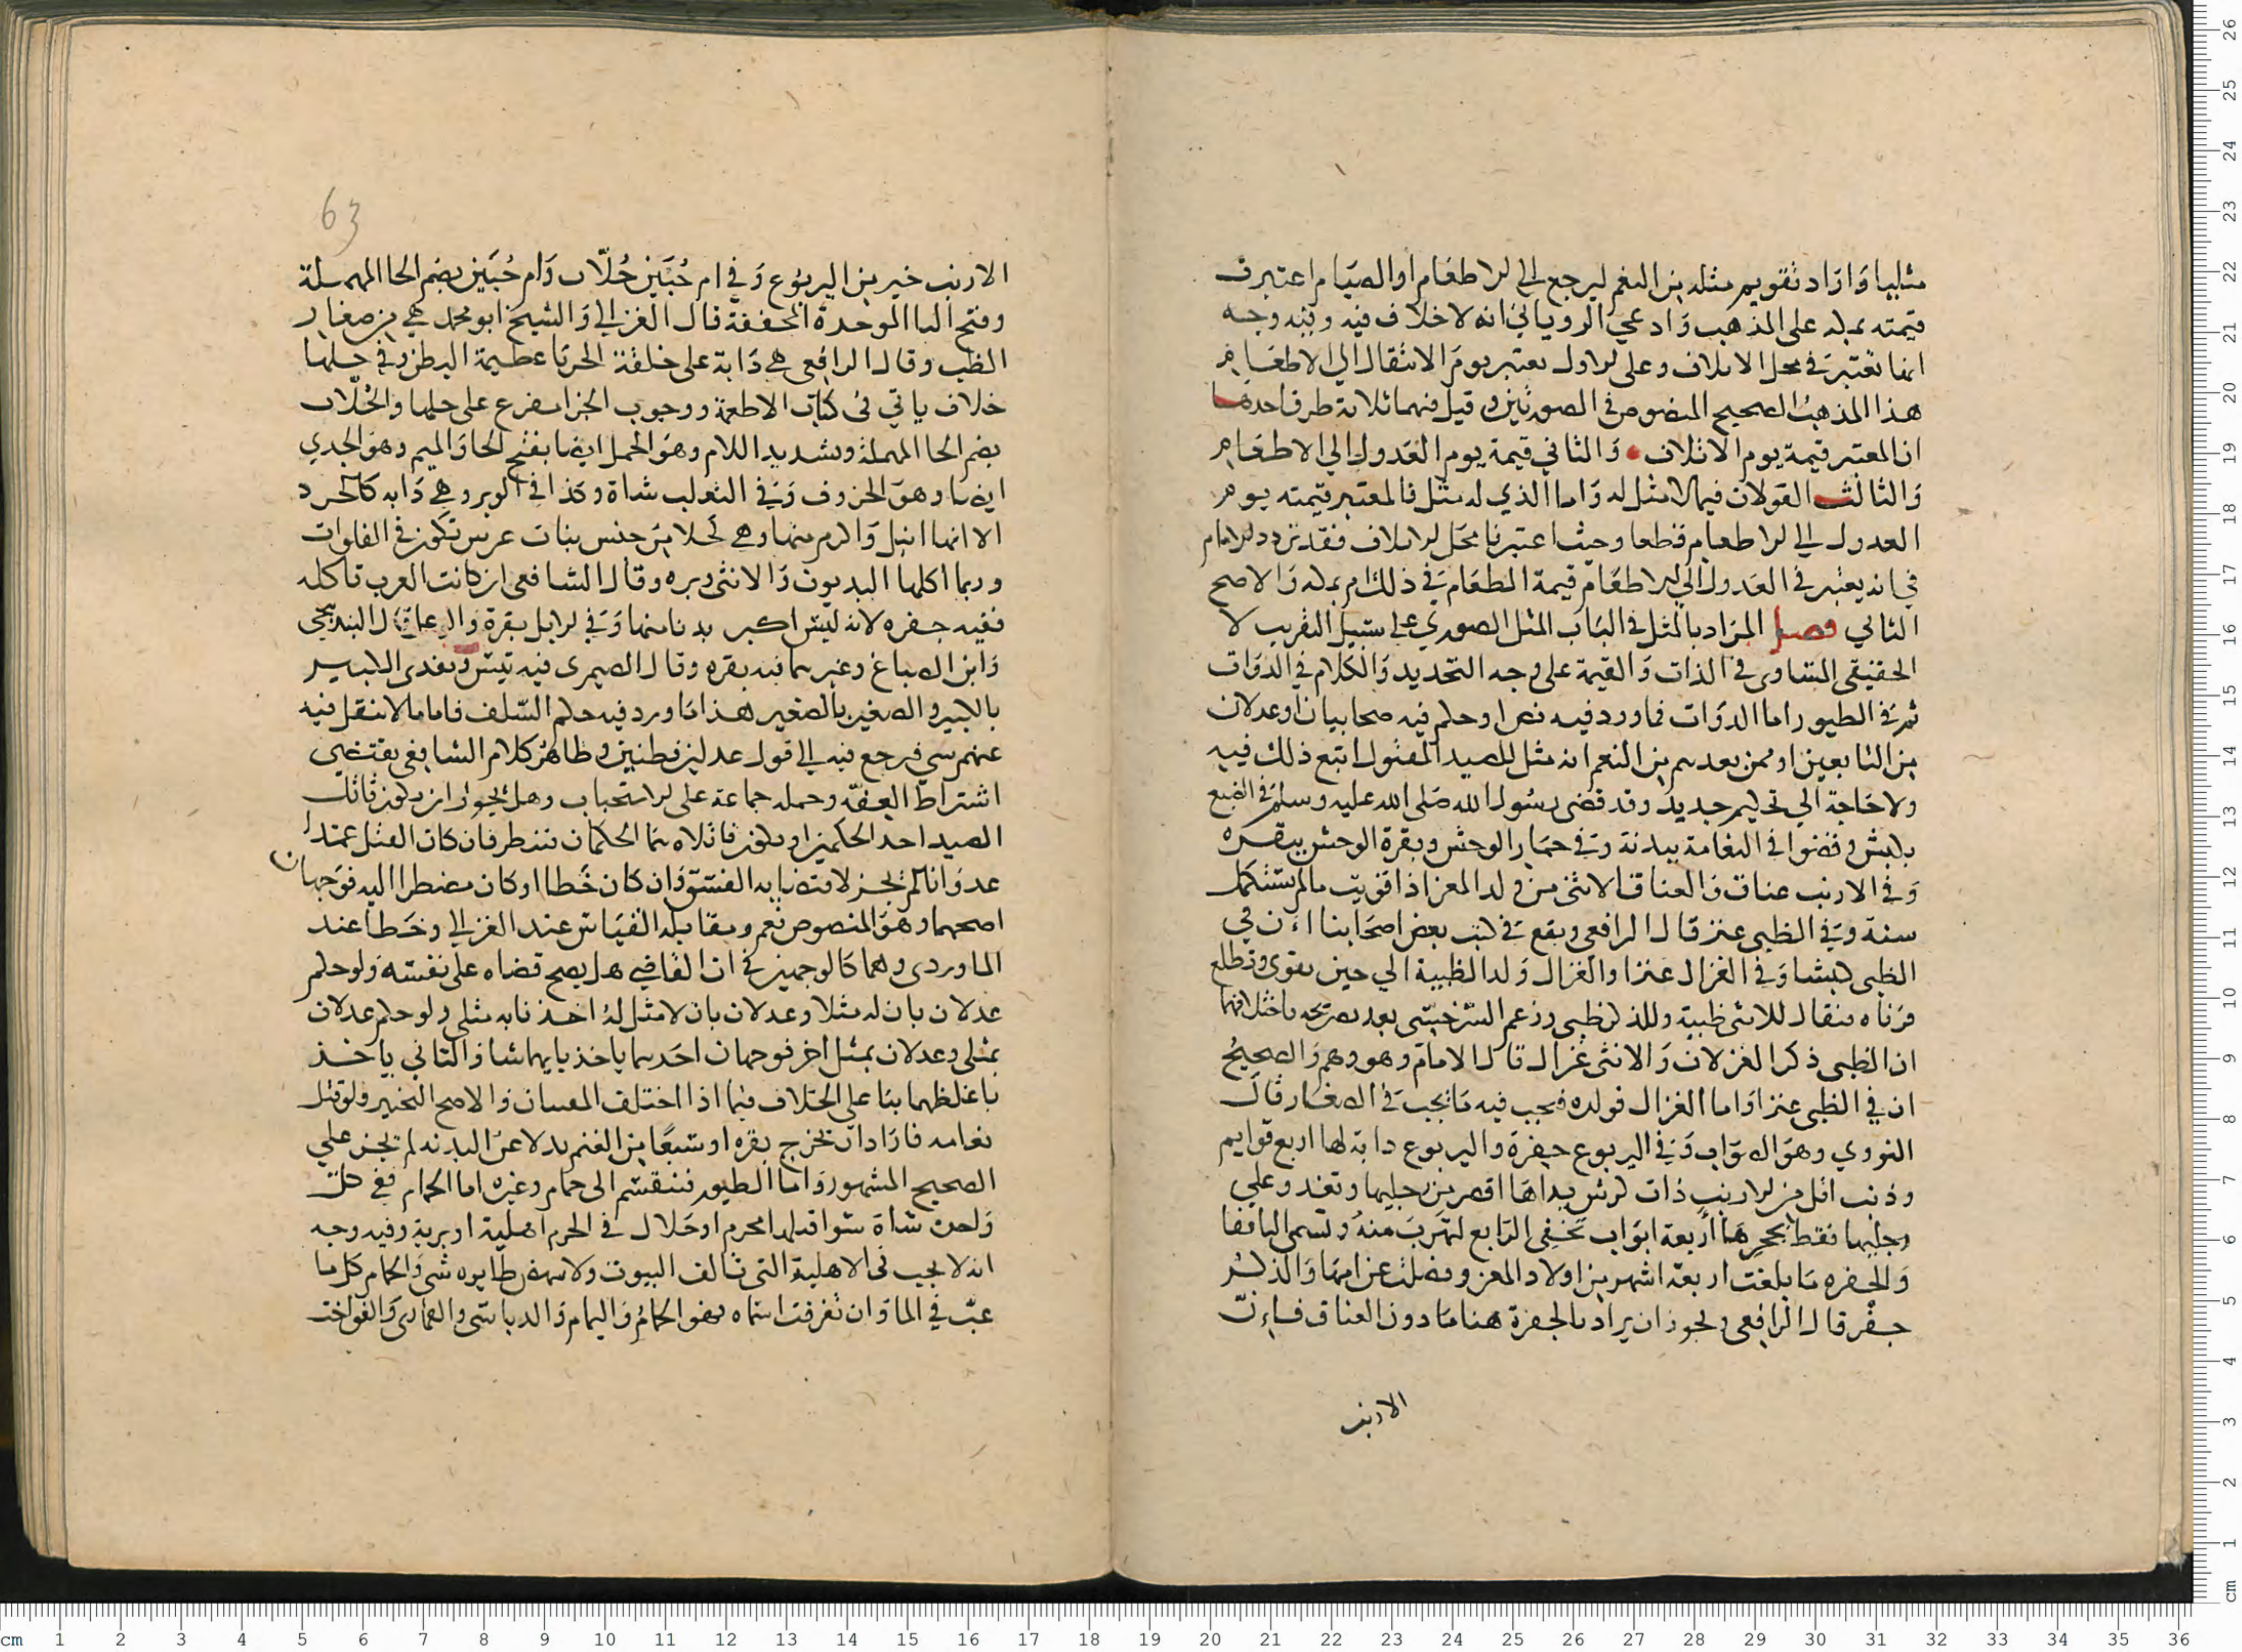 مثليا وَارَاد تقويم مثله من النعم ليرجع الي الاطعَام أوالصيَام اعتبرت
قيمته بمكة على المذهب وَادعي الروياني انه لاخلاف فيه وفيه وجه
انها تعتبَر في محل الاتلاف وعلى الاول يعتبر يومَ الانتقال الي الاطعَام
هذا المذهبُ الصحيح المنصوص في الصورتين وقيل فيهما ثلاثة طرق احدهَا
ان المعتبر قيمة يوم الاتلاف وَالثاني قيمة يوم العَدول الي الاطعَام
وَالثالث القولان فيما لامثل له وَاما الذي له مثل فالمعتبر قيمته يوم
العدول الي الاطعام قطعا وحيث اعتبرنا محَل الاتلاف فقد تردد الامام
في انه يعتبر في العَدول الي الاطعَام قيمة الطعَام في ذلك ام بمكة وَالاصح
الثاني فصل المرَاد بالمثل في البَاب المثل الصوري على سَبيل التقريب لا
الحقيقي المتساوى في الذات وَالقيمة على وجه التحديد وَالكلام في الدوَات
ثم في الطيور اما الدوَات فما ورد فيه نص او حكم فيه صحابيان او عدلان
من التابعين او ممن بعدهم من النعم انه مثل للصيد المقتول اتبع ذلك فيه
ولا حَاجة الي تحكيم جديد وقد قضى رسُول الله صَلى الله عليه وسلم في الضبع
بكبش وقضوا في النعَامة ببدنة وَفي حمَار الوحش وبقرة الوحش ببقره
وَفي الارنب عناق وَالعناق الانثى من ولد المعز اذا قويت مالم تستكمل
سنة وَفي الظبى عنز قال الرافعي ويقع في كتب بعض اصحَابنا ان في
الظبى كبشا وَفي الغزال عنزا والغزال وَلد الظبية الي حين يقوى وتطلع
قرنَاه فيقال للانثى ظبية وللذكر ظبى وزعم
ان الظبى ذكر الغزلان وَالانثى غزال قال الامام وهو وهم وَالصحيحُ
ان في الظبى عنزا وَاما الغزال فولده فيجب فيه مَا يجب في الصغَار قالَ
النووي وهوَ الصوَاب وَفي اليربوع جفرة واليربوع دابة لها اربع قوايم
وذنب اقل من الارنب ذات كرش يداهَا اقصر من رجليها وتعدو علي
رجليها فقط بحجرهَا أربعة ابوَاب تخفى الرَابع لتهرب منهُ وتسمى النافقا
وَالجفره مَا بلغت اربعة اشهر من اولاد المعز وفصلت عن امهَا وَالذكرُ
جفر قال الرافعى ويجوز ان يراد بالجفرة هنا مَا دون العناق فإن
الارنب
63
الارنب خير من اليربوُع وَفي ام حُبَين حُلّان وَام حُبَين بضم الحا المهملة
وفتح البا الموحدة المخففة قال الغزالي وَالشيخ ابو محمد هي من صغار
الظب وقال الرافعى هي دَابة على خلقة الحربَا عظيمة البطن وفي حلها
خلاف ياتي في كتاب الاطعمة ووجوب الجزا مفرع على حلها والحُلّان
بضم الحا المهملة وتشديد اللام وهوَ الحمل ايضا بفتح الحا وَالميم وهوَ الجدي
ايضا وهوَ الخروف وَفي الثعلب شاة وكذا في الوبر وهي دَابه كالجرد
الا انها انبل وَاكرم منها وهي كحلا من جنس بنات عرس تكون في الفلوات
وربما اكلها البديون وَالانثى وبره وقال الشافعى ان كانت العرب تاكله
ففيه جفره لانه ليسَ اكبر بدنا منها وَفي الابل بقرة قال البندنيجى
وَابن الصباغ وغيرهما فيه بقره وقال الصيمرى فيه تيسَ ويفدى الكبير
بالكبير والصغير بالصغير هذا مَا ورد فيه حكم السّلف فاما ما لا ينقل فيه
عنهم شي فيرجع فيه الي قول عدلين فطنين وظاهر كلام الشافعى يقتضي
اشتراط الفقه وحمله جماعة على الاستحباب وهل يجوز ان يكون قاتل
الصيد احد الحكمين او يكون قاتلاه هما الحكمان ننظر فان كان القتل عمدا
عدوَانا لم يجز لاقتضابه الفسق وَان كان خَطا او كان مضطرا اليه فوَجهان
اصحهما وهوَ المنصوص نعم ومقابله القيَاس عند الغزالي وخَطا عند
الماوردى وهما كالوجهين في ان القاضي هل يصح قضاه على نفسَه وَلو حكم
عدلان بان له مثلا وعدلان بان لا مثل لهُ اخذنا به مثلى ولو حكم عدلان
بمثلى وعدلان بمثل اخر فوجهان احَدهما ياخذ بايهما شا وَالثاني ياخذ
باغلظهما بنا على الخلاف فيما اذا اختلف المفتيان وَالاصح التخيير ولو قتل
نعامه فارَاد ان يخرج بقره او سَبعًا من الغنم بدلا عن البدنه لم يجز علي
الصحيح المشهور وَاما الطيور فننقسم الى حمَام وغيره اما الحمَام ففى كل
وَاحدة شاة سَوا قتلها محرم اوحَلال في الحرم اهلية او برية وفيه وجه
انه لا يجب في الاهلية التى تالف البيوت ولا طايره شى وَالحمام كل ما
عبّ في الما وَان تفرقت اسماه فهو الحمَامُ وَاليمام وَالدباسى والقمارى وَالفواخت